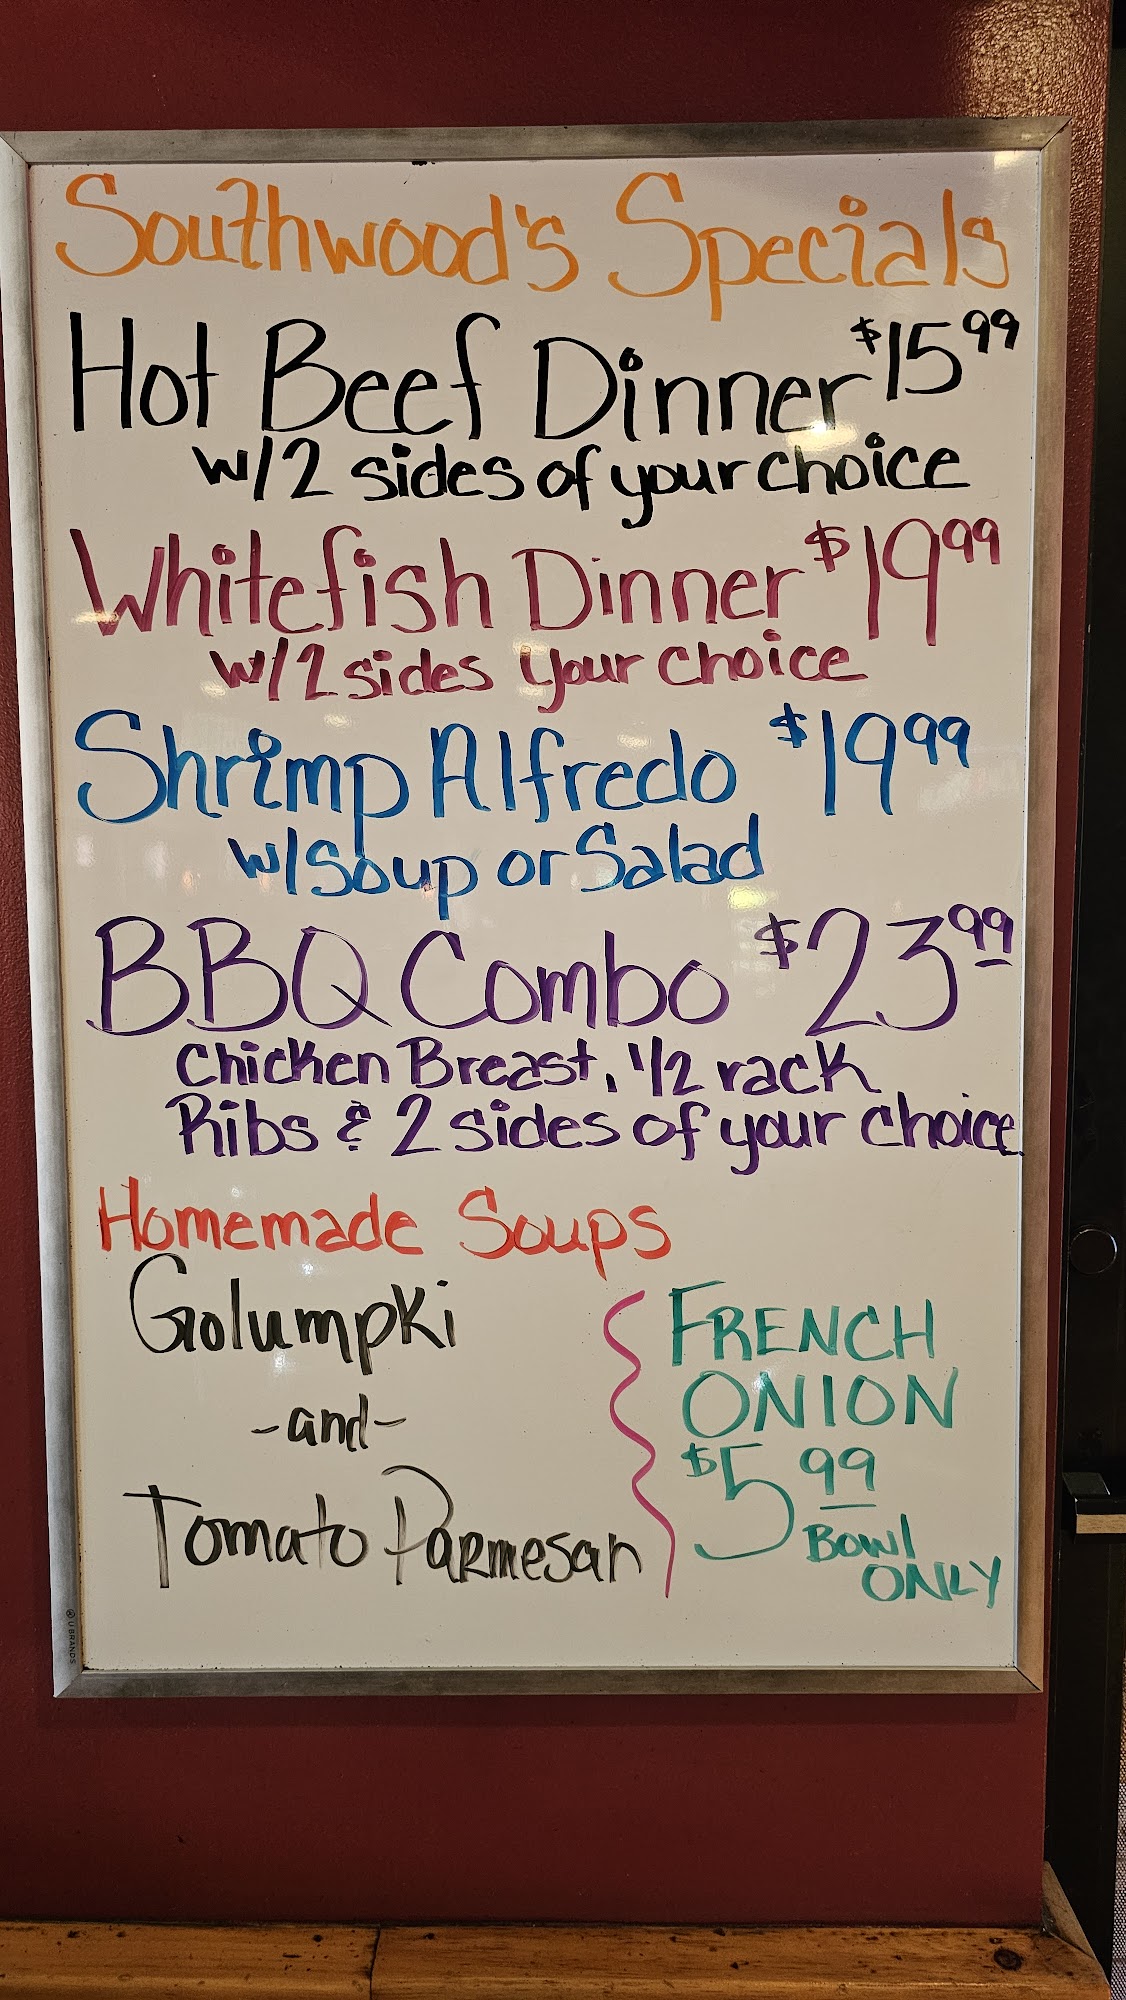 Southwood's Specials
Hot Beef Dinner $15.99
w/2 sides of your choice
Whitefish Dinner $19.99
w/2 sides your choice
Shrimp Alfredo $19.99
w/Soup or Salad
BBQ Combo $23.99
Chicken Breast, 1/2 rack
Ribs & 2 sides of your choice
Homemade Soups
Golumpki
-and-
Tomato Parmesan
FRENCH
ONION
$5.99
Bowl
ONLY
U BRANDS